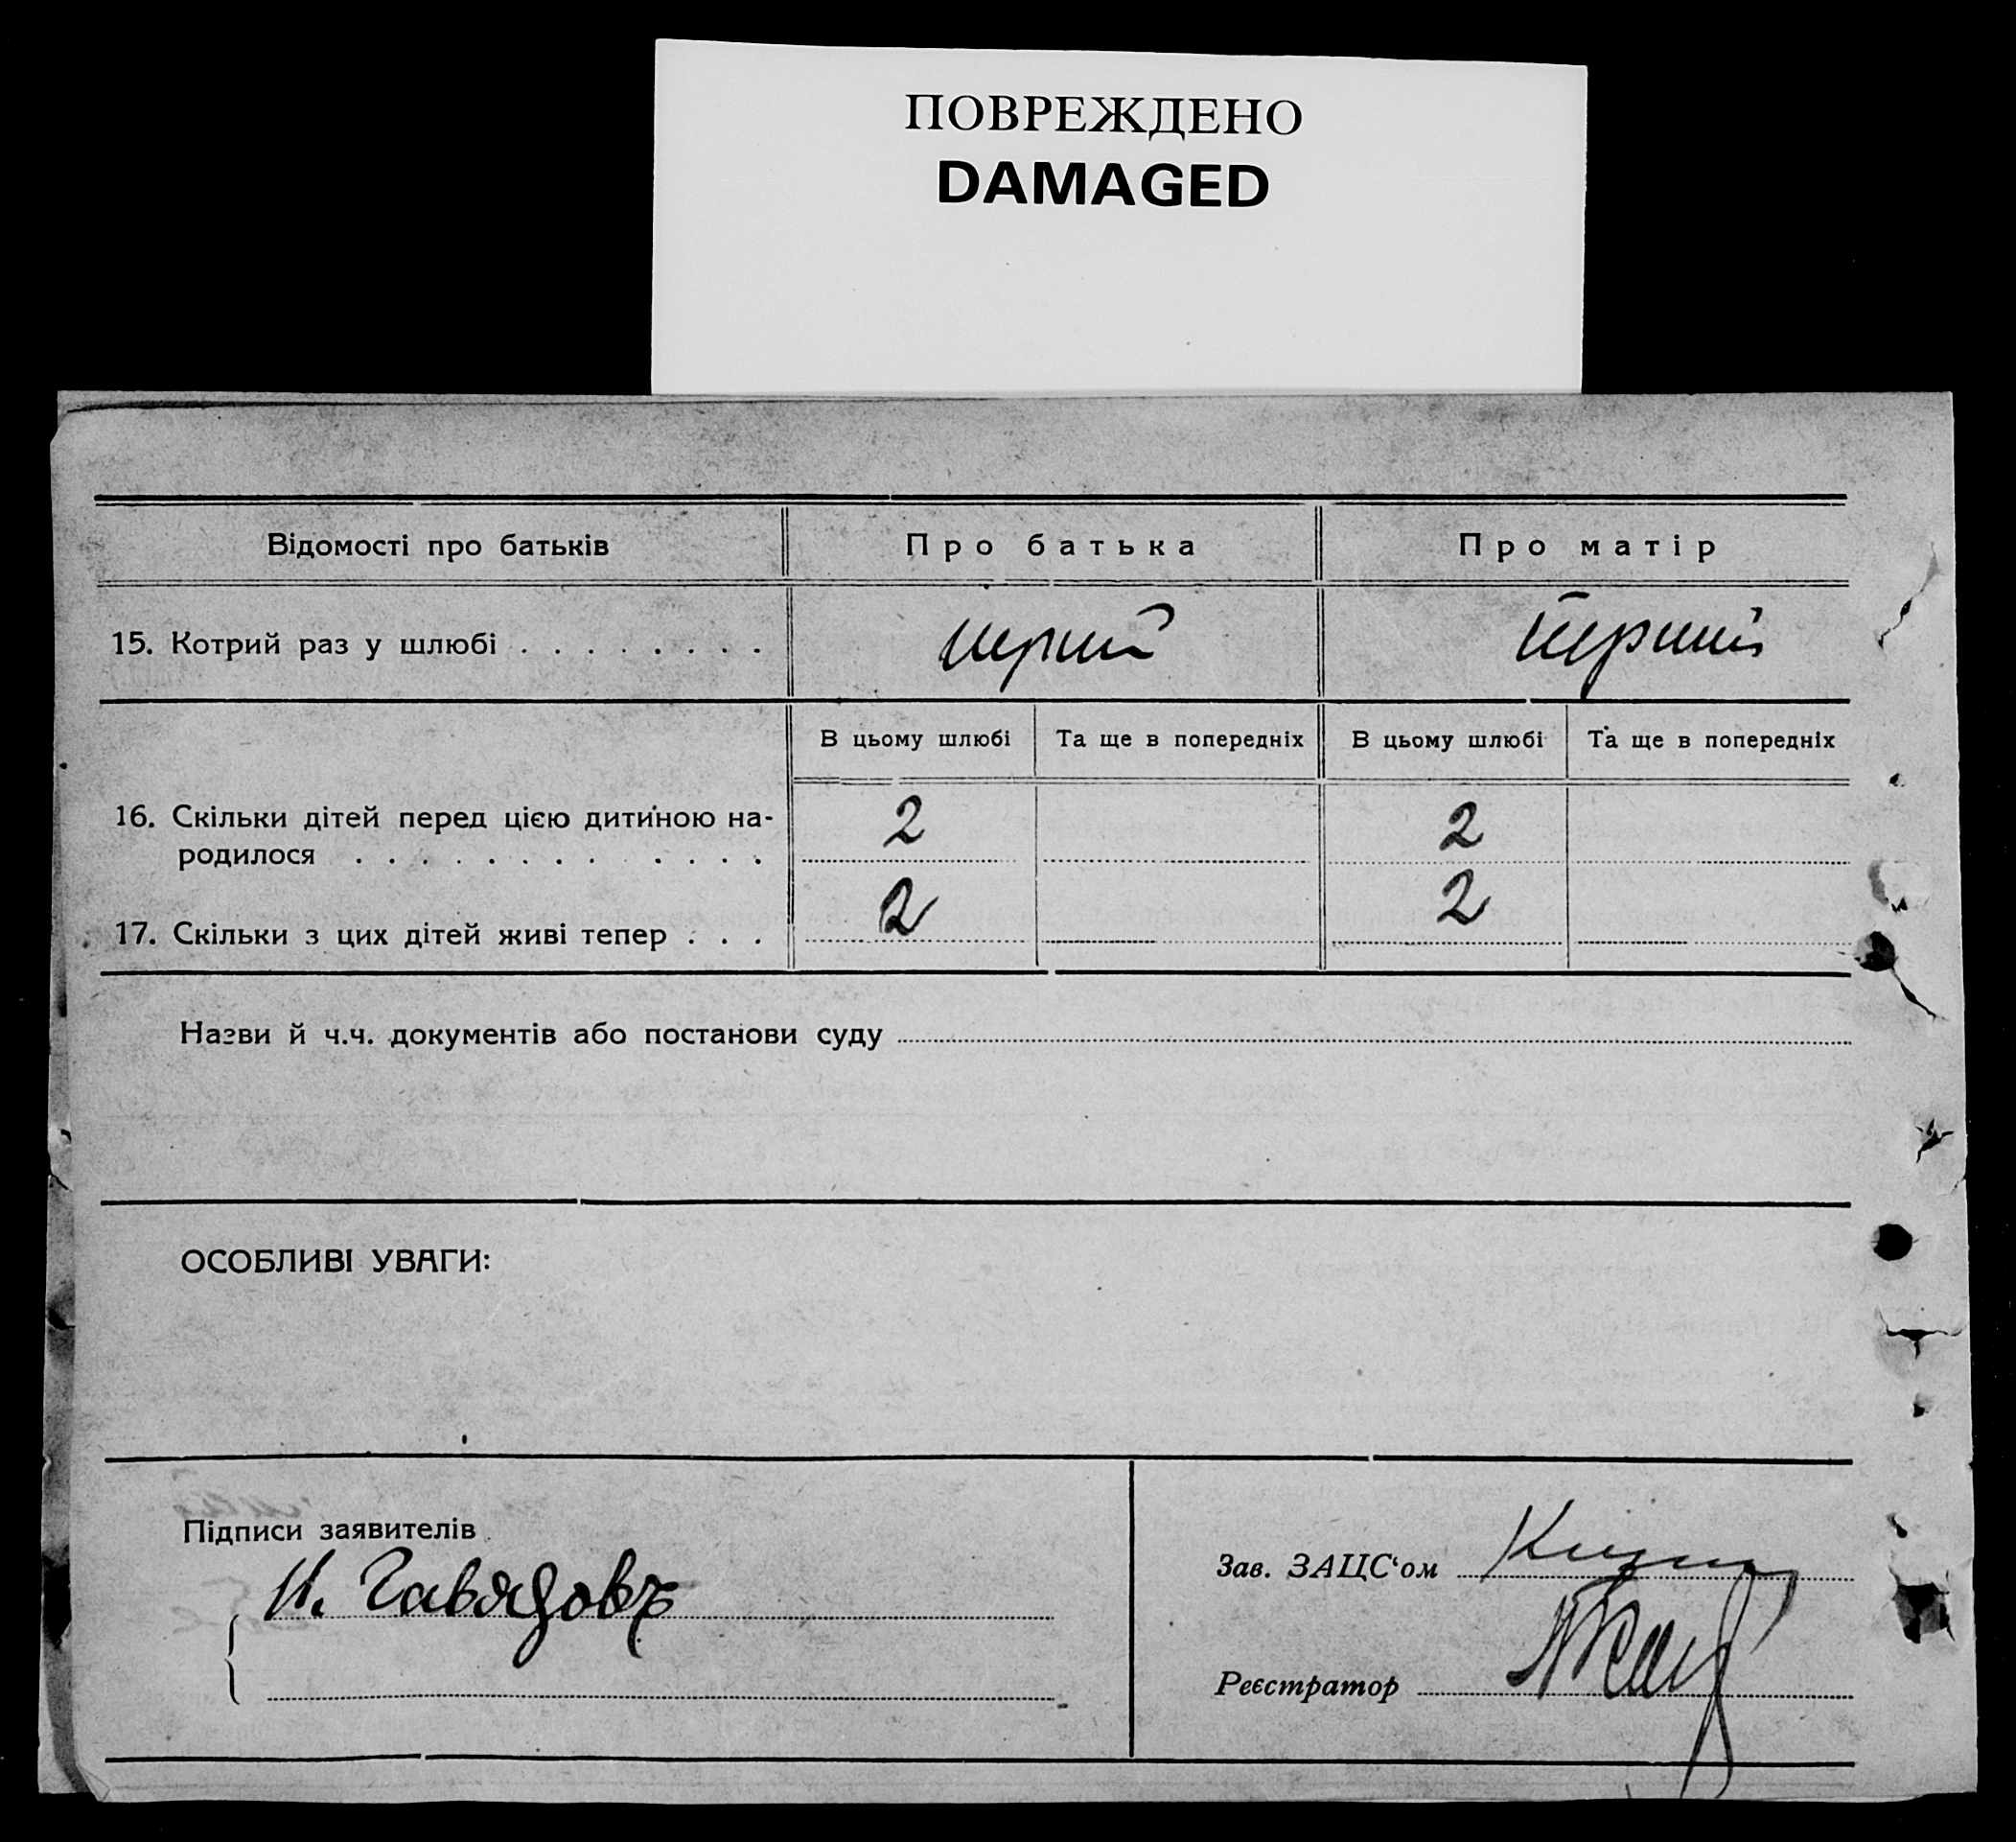 ПОВРЕЖДЕНО
DAMAGED
Відомості про батьків Про батька Про матір
15. Котрий раз у шлюбі . . . . . . . . перший перший
В цьому шлюбі Та ще в попередніх В цьому шлюбі Та ще в попередніх
16. Скільки дітей перед цією дитиною на-
родилося . . . . . . . . . . . . 2 2
17. Скільки з цих дітей живі тепер . . . 2 2
Назви й ч.ч. документів або постанови суду
ОСОБЛИВІ УВАГИ:
Підписи заявителів
И. Гавядовъ
Зав. ЗАЦС‘ом
Реєстратор